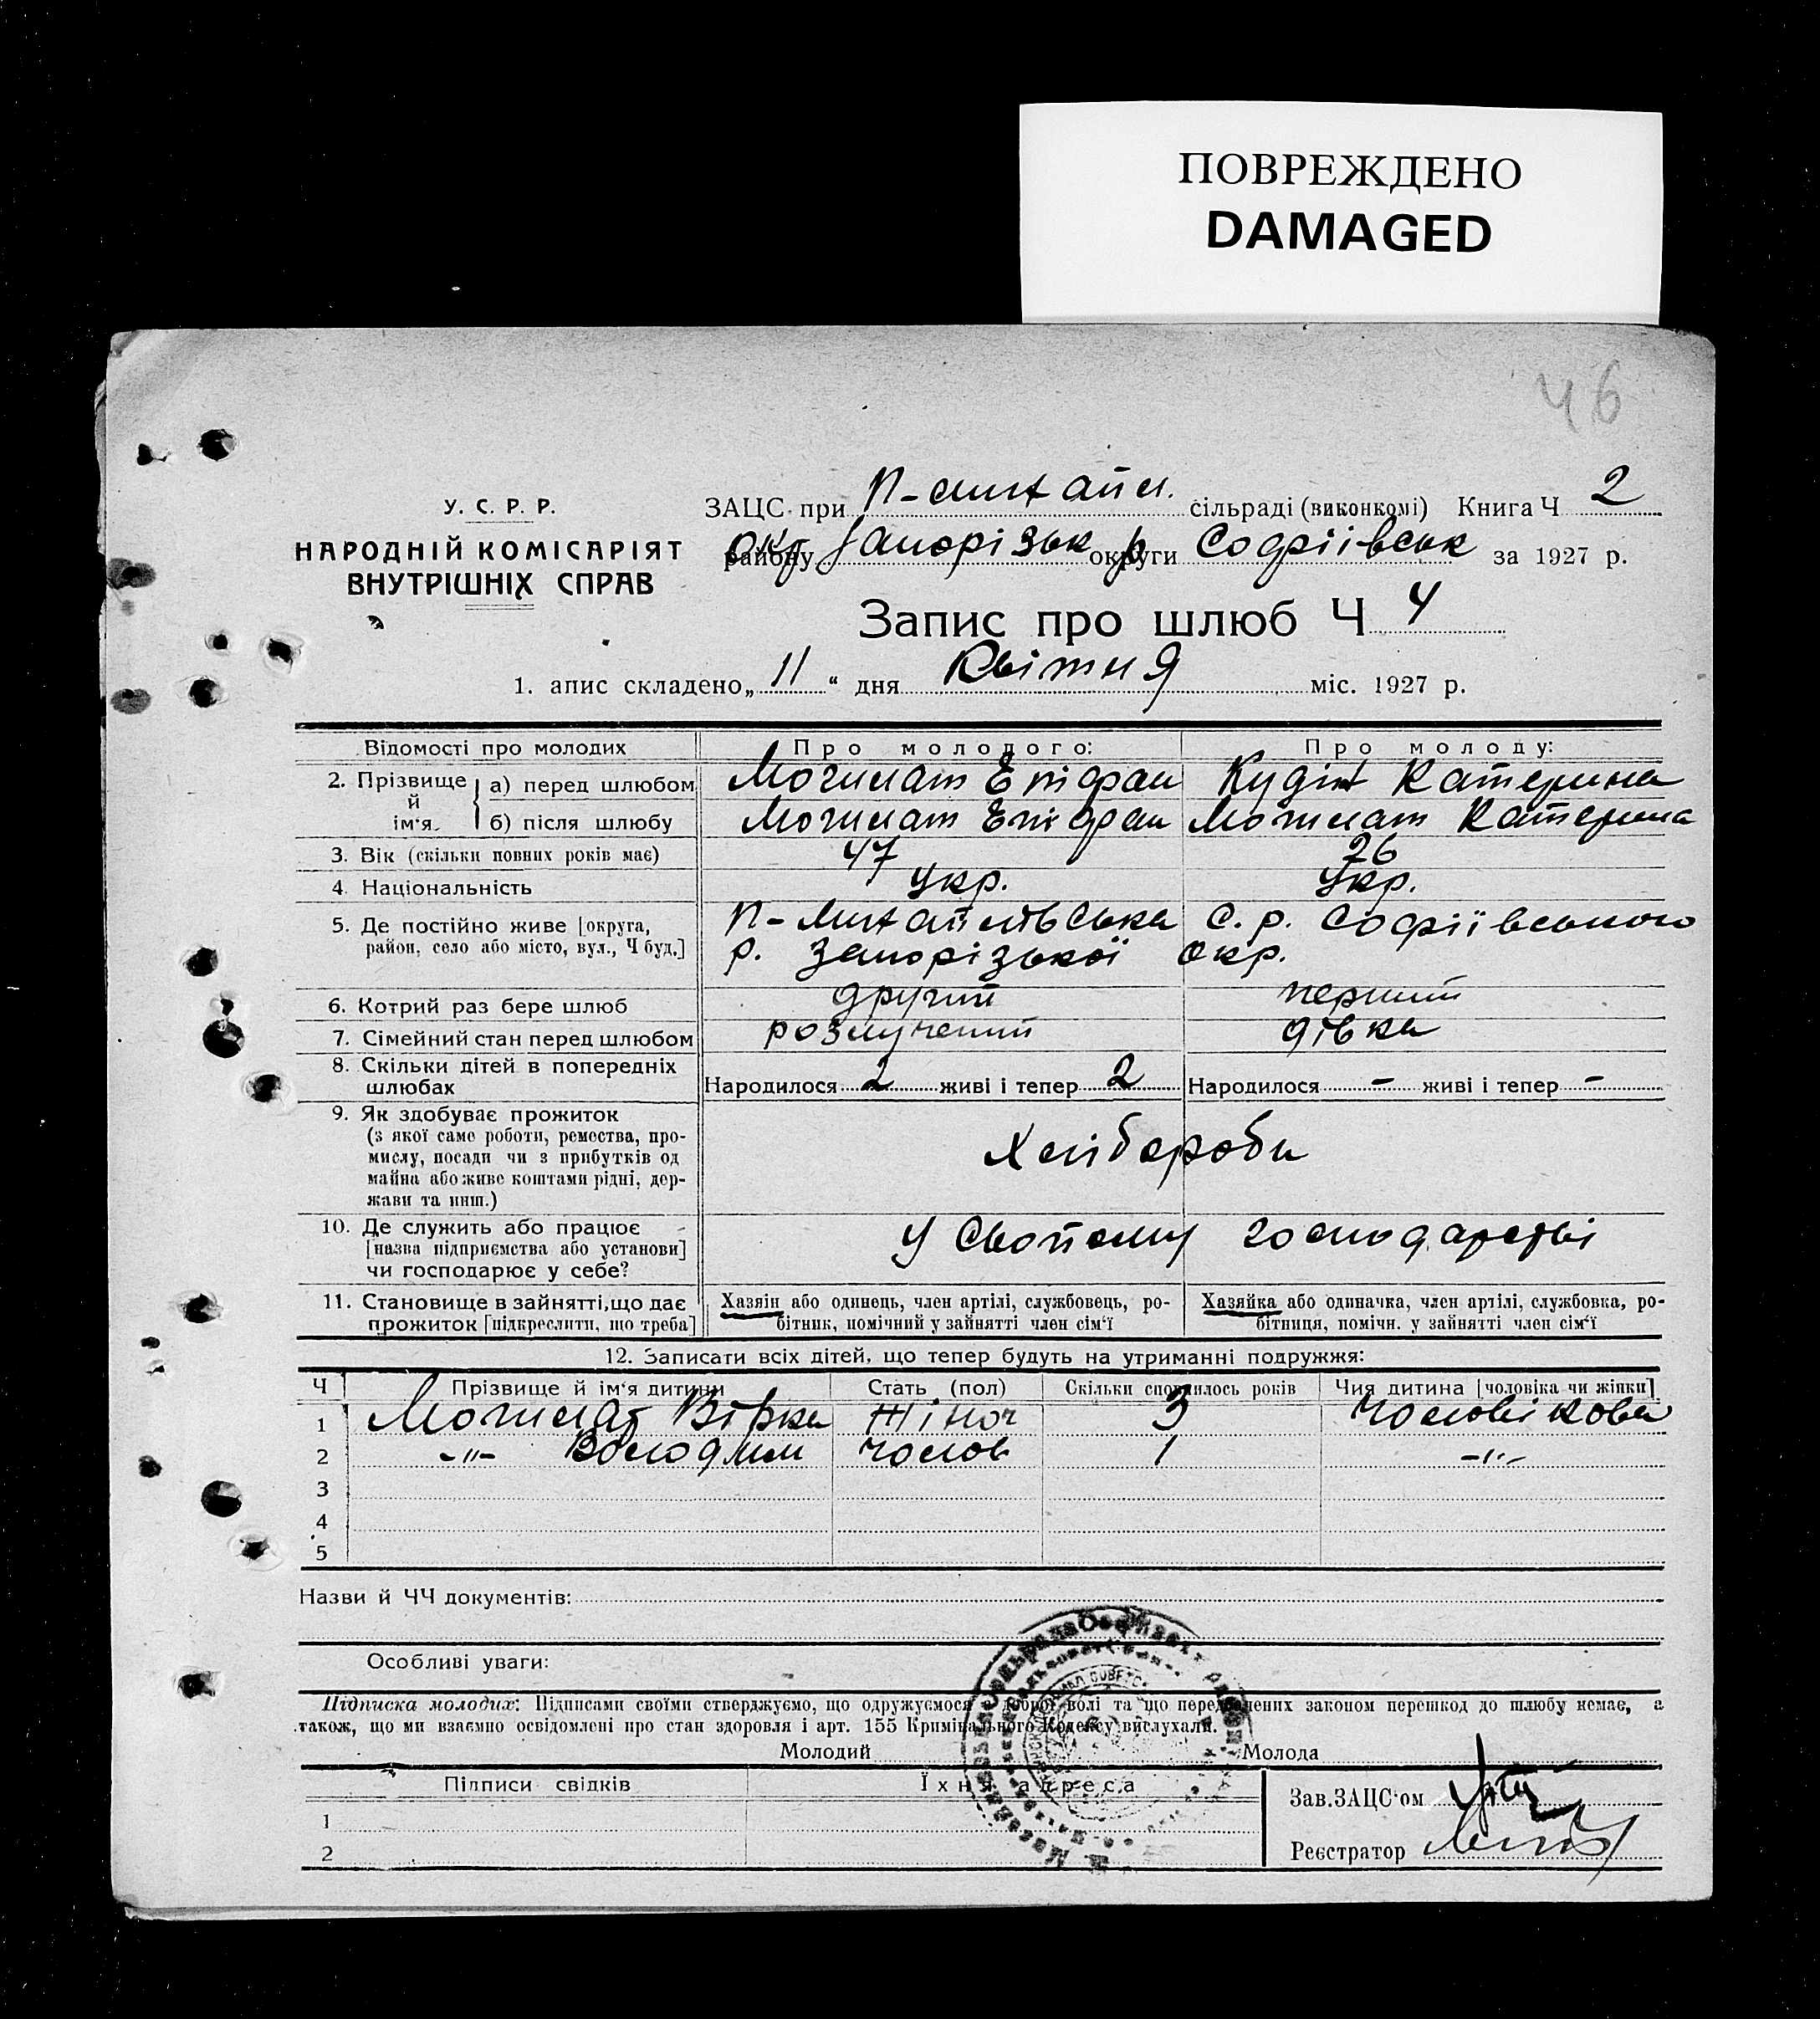 ПОВРЕЖДЕНО
DAMAGED
46
У. С. Р. Р.
НАРОДНІЙ КОМІСАРІЯТ
ВНУТРІШНІХ СПРАВ
ЗАЦС при П-Михайл. сільраді (виконкомі) Книга Ч 2
району окр Запорізьк округи р Софіївськ за 1927 р.
Запис про шлюб Ч 4
1. апис складено „ 11 “ дня Квітня міс. 1927 р.
Відомості про молодих Про молодого: Про молоду:
2. Прізвище й ім‘я а) перед шлюбом Могилат Епіфан Кудін Катерина
б) після шлюбу Могилат Епіфан Могилат Катерина
3. Вік (скільки повних років має) 47 26
4. Національність Укр. Укр.
5. Де постійно живе [округа, П-Михайлівська с. р. Софіївського
район, село або місто, вул., Ч буд.] р. Запорізької Окр.
6. Котрий раз бере шлюб другий перший
7. Сімейний стан перед шлюбом розлучений дівка
8. Скільки дітей в попередніх
шлюбах Народилося 2 живі і тепер 2 Народилося - живі і тепер -
9. Як здобуває прожиток
(з якої саме роботи, ремества, про-
мислу, посади чи з прибутків од
майна або живе коштами рідні, дер-
жави та инш.)
Хлібороби
10. Де служить або працює
[назва підприємства або установи]
чи господарює у себе?
У Свойому господарстві
11. Становище в зайнятті, що дає Хазяін або одинець, член артілі, службовець, ро- Хазяйка або одиначка, член артілі, службовка, ро-
прожиток [підкреслити, що треба] бітник, помічний у зайнятті член сім‘ї бітниця, помічн. у зайнятті член сім‘ї
12. Записати всіх дітей, що тепер будуть на утриманні подружжя:
Ч Прізвище й ім‘я дитини Стать (пол) Скільки сповнилось років Чия дитина [чоловіка чи жінки]
1 Могилат Вірка Жіноч 3 Чоловікова
2 -"- Володим чолов 1 -"-
3
4
5
Назви й ЧЧ документів:
Особливі уваги:
Підписка молодих: Підписами своїми стверджуємо, що одружуємося з доброї волі та що передбачених законом перешкод до шлюбу немає, а
також, що ми взаємно освідомлені про стан здоровля і арт. 155 Кримінального Кодексу вислухали.
Молодий Молода
Підписи свідків Їхня адреса
Зав. ЗАЦС‘ом
1
Реєстратор
2